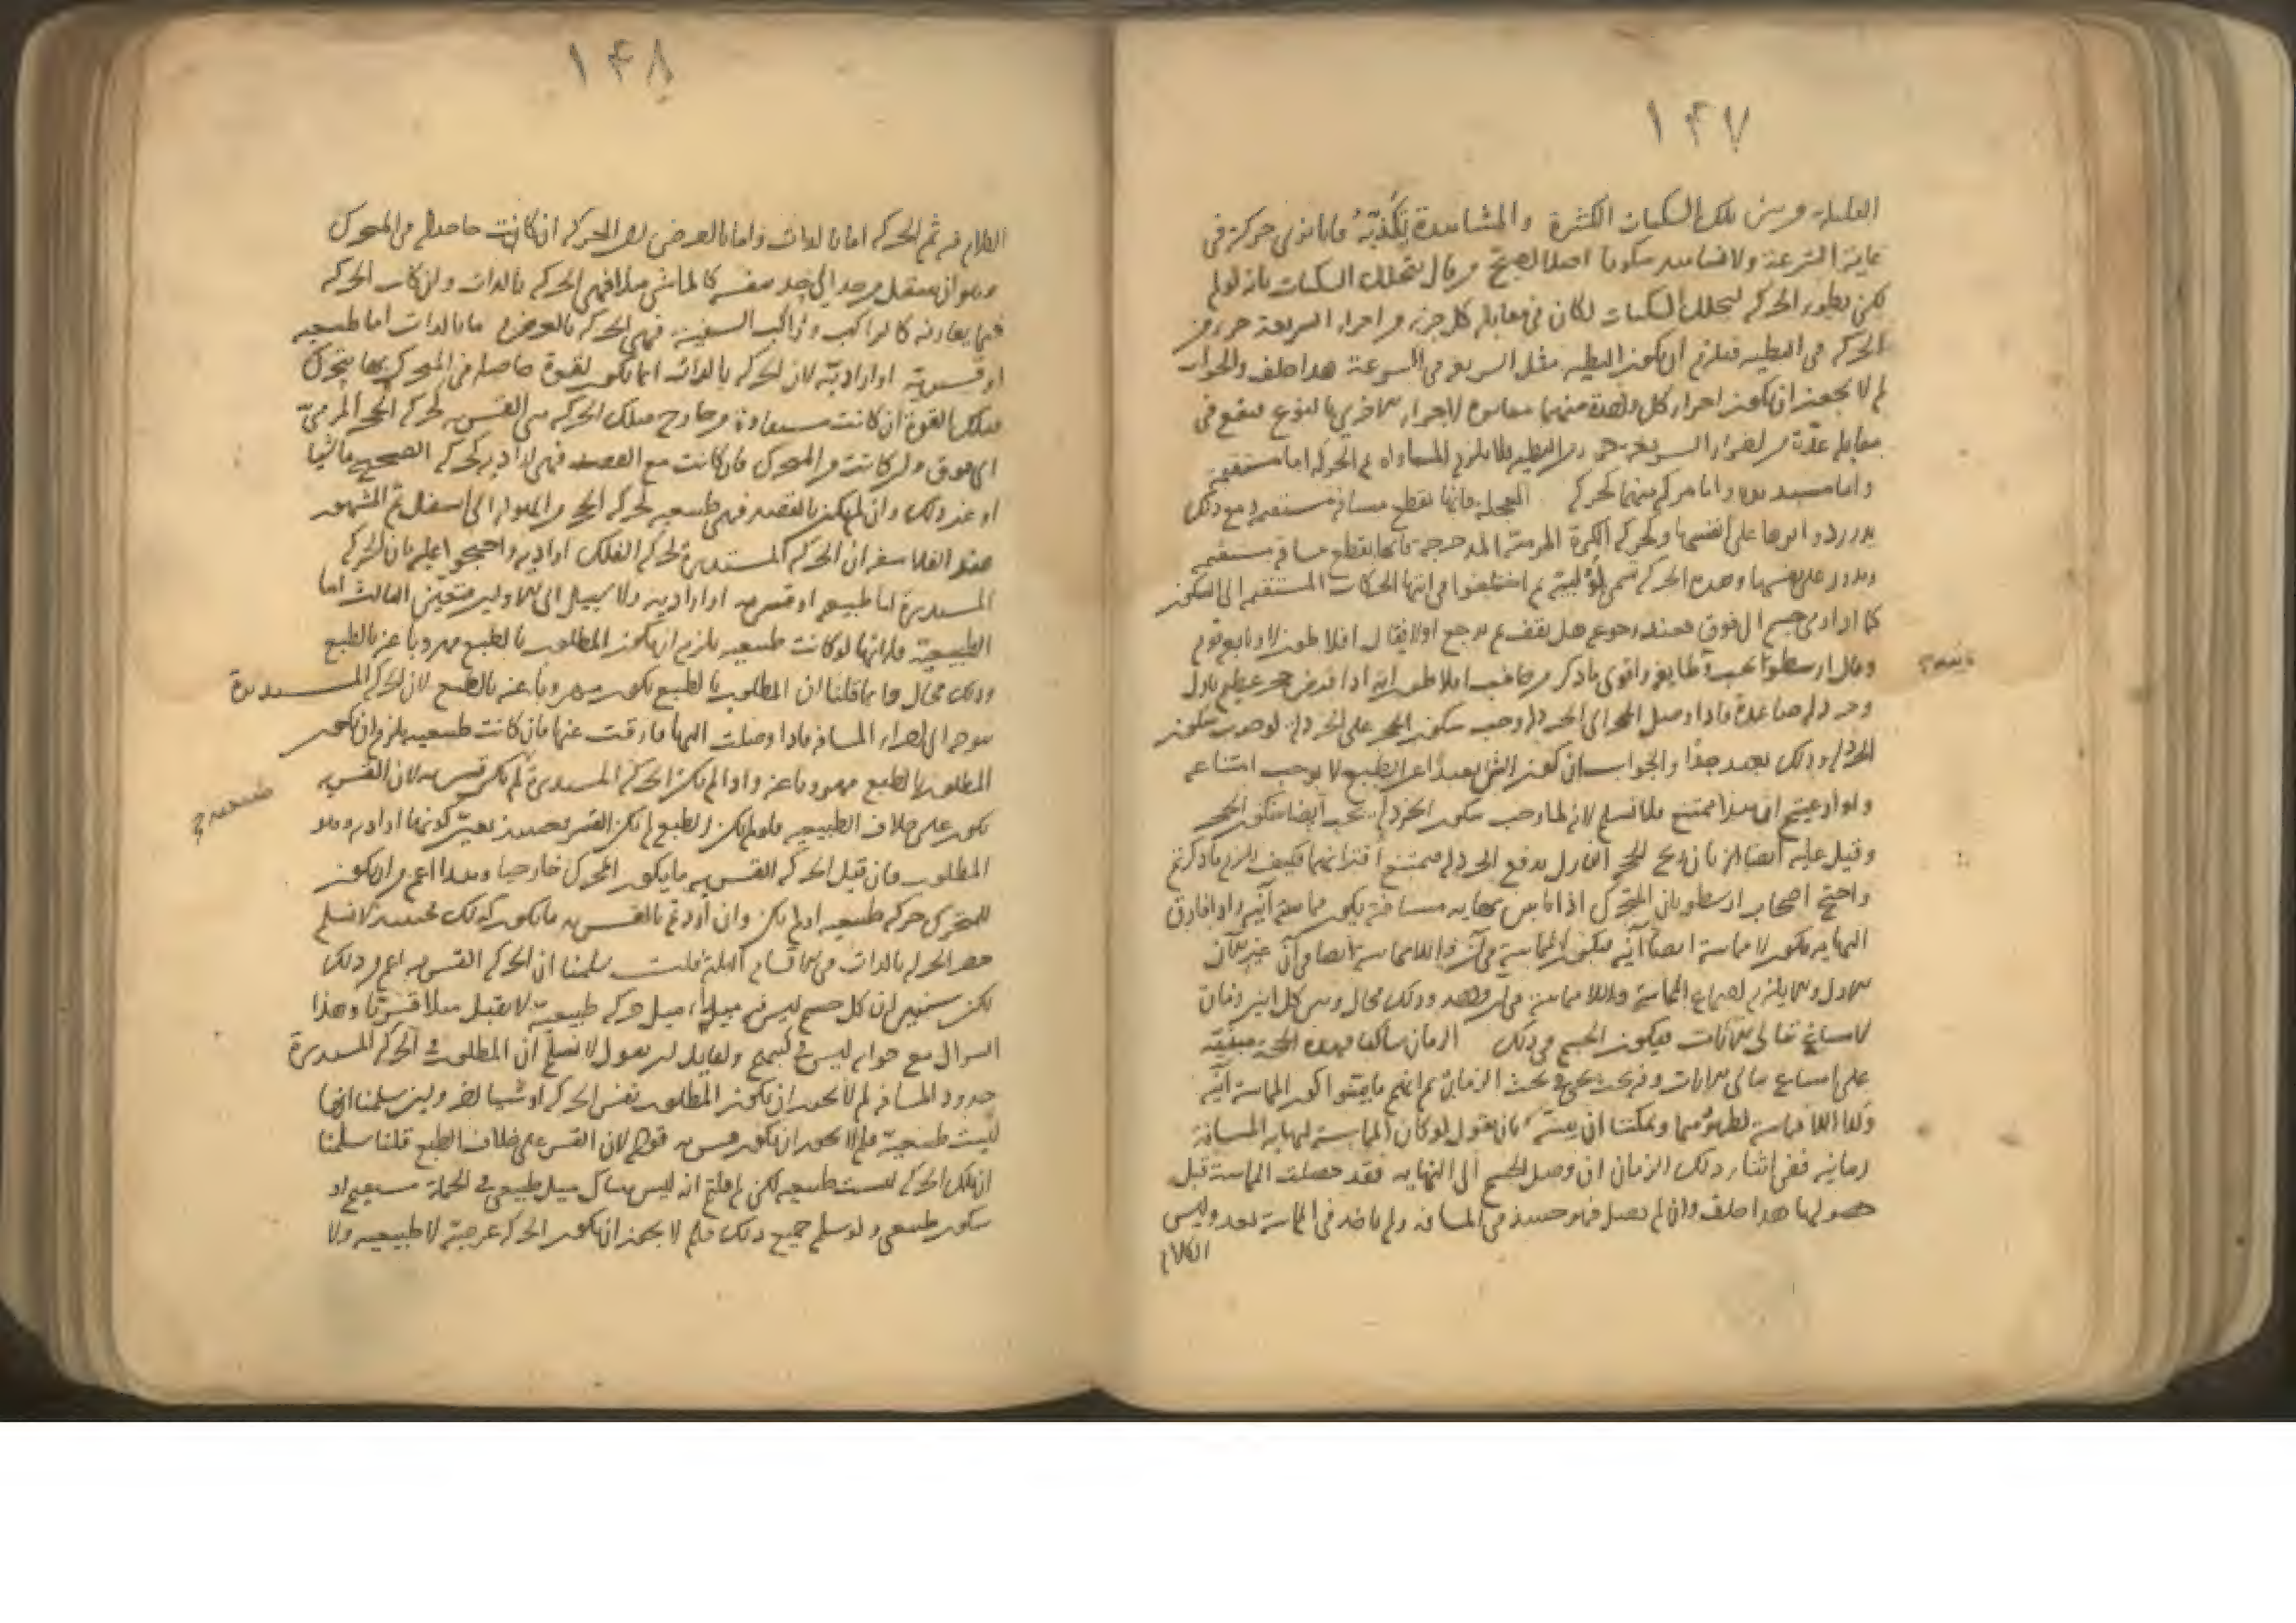 ١۴٧
القليلة وبين تلك السكنات الكثيرة والمشاهدة تكذبه فانا نرى حركة في
غاية السرعة ولا نشاهد سكونا اصلا احتج من قال بتخلل السكنات بانه لو لم
يكن بطؤ الحركة لتخلل السكنات لكان في مقابلة كل جزء من اجزاء السريعة جزء من
الحركة البطيئة فيلزم ان يكون البطيء مثل السريع في السرعة هذا خلف والجواب
لم لا يجوز ان يكون اجزاء كل واحدة منهما لاجزاء الاخرى بالنوع فيقع في
مقابلة عدة من اجزاء السريعة جزء من البطيئة فلا يلزم المساواة ثم الحركة اما مستقيمة
واما مستديرة واما مركبة منهما كحركة العجلة فانها تقطع مسافة مستقيمة مع ذلك
على نفسها وكحركة الكرة المدحرجة فانها تقطع مسافة مستقيمة
وتدور على نفسها وهذه الحركة تسمى ثم اختلفوا في انتهاء الحركات المستقيمة الى السكون
كما اذا رمى جسم الى فوق فعند رجوعه هل يقف ثم يرجع او لا فقال افلاطون لا وتابعه قوم
تابعه
وقال ارسطو يجب واقوى ما ذكر من جانب افلاطون انه اذا فرض حجر عظيم نازل
وخردلة صاعدة فاذا وصل الحجر الى الخردلة وجب سكون الحجر على الخردلة لوجوب سكون
الخردلة وذلك بعيد جدا والجواب ان كون الشيء بعيدا عن الطبع لا يوجب امتناعه
ولو ادعيتم ان هذا ممتنع فلا نسلم لانه لما وجب سكون الخردلة يجب ايضا سكون الحجر
وقيل عليه ايضا ان ريح الحجر النازل يدفع الخردلة فيمتنع اقترانهما فكيف الزم ما ذكرتم
واحتج اصحاب ارسطو بان المتحرك اذا نهاية مسافة يكون مماسته آنية واذا فارق
النهاية يكون لا مماسة ايضا آنية فيكون المماسة في آن واللامماسة ايضا في آن غير الآن
الاول والا يلزم اجتماع المماسة واللامماسة في آن واحد وذلك محال وبين كل اثنين زمان
لامتناع تتالي الآنات فيكون الجسم في ذلك الزمان ساكنا وهذه الحجة مبنية
على امتناع تتالي الآنات وفيه بحث يجيء في بحث الزمان ثم انهم ما بينوا كون المماسة آنية
وكذا اللامماسة لظهورهما ويمكننا ان نبينه بان نقول لو كان المماسة لنهاية المسافة
زمانية ففي اثناء ذلك الزمان ان وصل الجسم الى النهاية فقد حصلت المماسة قبل
حصولها هذا خلف وان لم يصل فهو حينئذ في المسافة ولم ياخذ في المماسة بعد وليس
الكلام
١۴٨
الكلام فيه ثم الحركة اما بالذات واما بالعرض لان الحركة ان كانت حاصلة في المتحرك
وهو ان ينتقل من حد الى حد بنفسه كالماشي مثلا فهي الحركة بالذات وان كانت الحركة
فيما يقارنه كالراكب وراكب السفينة فهي الحركة بالعرض وما بالذات اما طبيعية
او قسرية او ارادية لان الحركة بالذات انما تكون لقوة حاصلة في المتحرك بها يتحرك
فتلك القوة ان كانت مستفادة من خارج فتلك الحركة هي القسرية كحركة الحجر المرمي
الى فوق وان كانت من المتحرك فان كانت مع القصد فهي ارادية كحركة الصحيح ماشيا
او غير ذلك وان لم يكن بالقصد فهي طبيعية كحركة الحجر من العلو الى اسفل ثم المشهور
عند الفلاسفة ان الحركة المستديرة كحركة الفلك ارادية واحتجوا عليه بان الحركة
المستديرة اما طبيعية او قسرية او ارادية ولا سبيل الى الاولين فتعين الثالث اما
الطبيعية فلانها لو كانت طبيعية يلزم ان يكون المطلوب بالطبع مهروبا عنه بالطبع
وذلك محال وانما قلنا ان المطلوب بالطبع يكون مهروبا عنه بالطبع لان الحركة المستديرة
متوجه الى اجزاء المسافة فاذا وصلت اليها فارقت عنها فان كانت طبيعية يلزم ان يكون
المطلوب بالطبع مهروبا عنه واذا لم يكن الحركة المستديرة لم تكن قسرية لان القسرية
طبيعية
تكون على خلاف الطبيعية فلو لم يكن الطبع لم يكن القسر فحينئذ تعين كونها ارادية وهو
المطلوب فان قيل الحركة القسرية ما يكون المحرك خارجيا وهذا اعم من ان يكون
للمتحرك حركة طبيعية او لم يكن وان اردتم بالقسرية ما يكون كذلك فحينئذ لا نسلم
حصر الحركة بالذات في الاقسام الثلاثة قلت سلمنا ان الحركة القسرية اعم من ذلك
لكن سنبين ان كل جسم ليس فيه ميل حركة طبيعية لا يقبل ميلا قسريا وهذا
السؤال مع جوابه ليس في ولقائل ان يقول لا نسلم ان المطلوب في الحركة المستديرة
حدود المسافة لم لا يجوز ان يكون المطلوب نفس الحركة او شيئا آخر ولئن سلمنا انها
ليست طبيعية فلم لا يجوز ان يكون قسرية قوله لان القسر على خلاف الطبع قلنا سلمنا
ان تلك الحركة ليست طبيعية لكن لم قلتم انه ليس هناك ميل طبيعي في الجملة مستقيم او
سكون طبيعي ولو سلم جميع ذلك فلم لا يجوز ان يكون الحركة عرضية لا طبيعية ولا